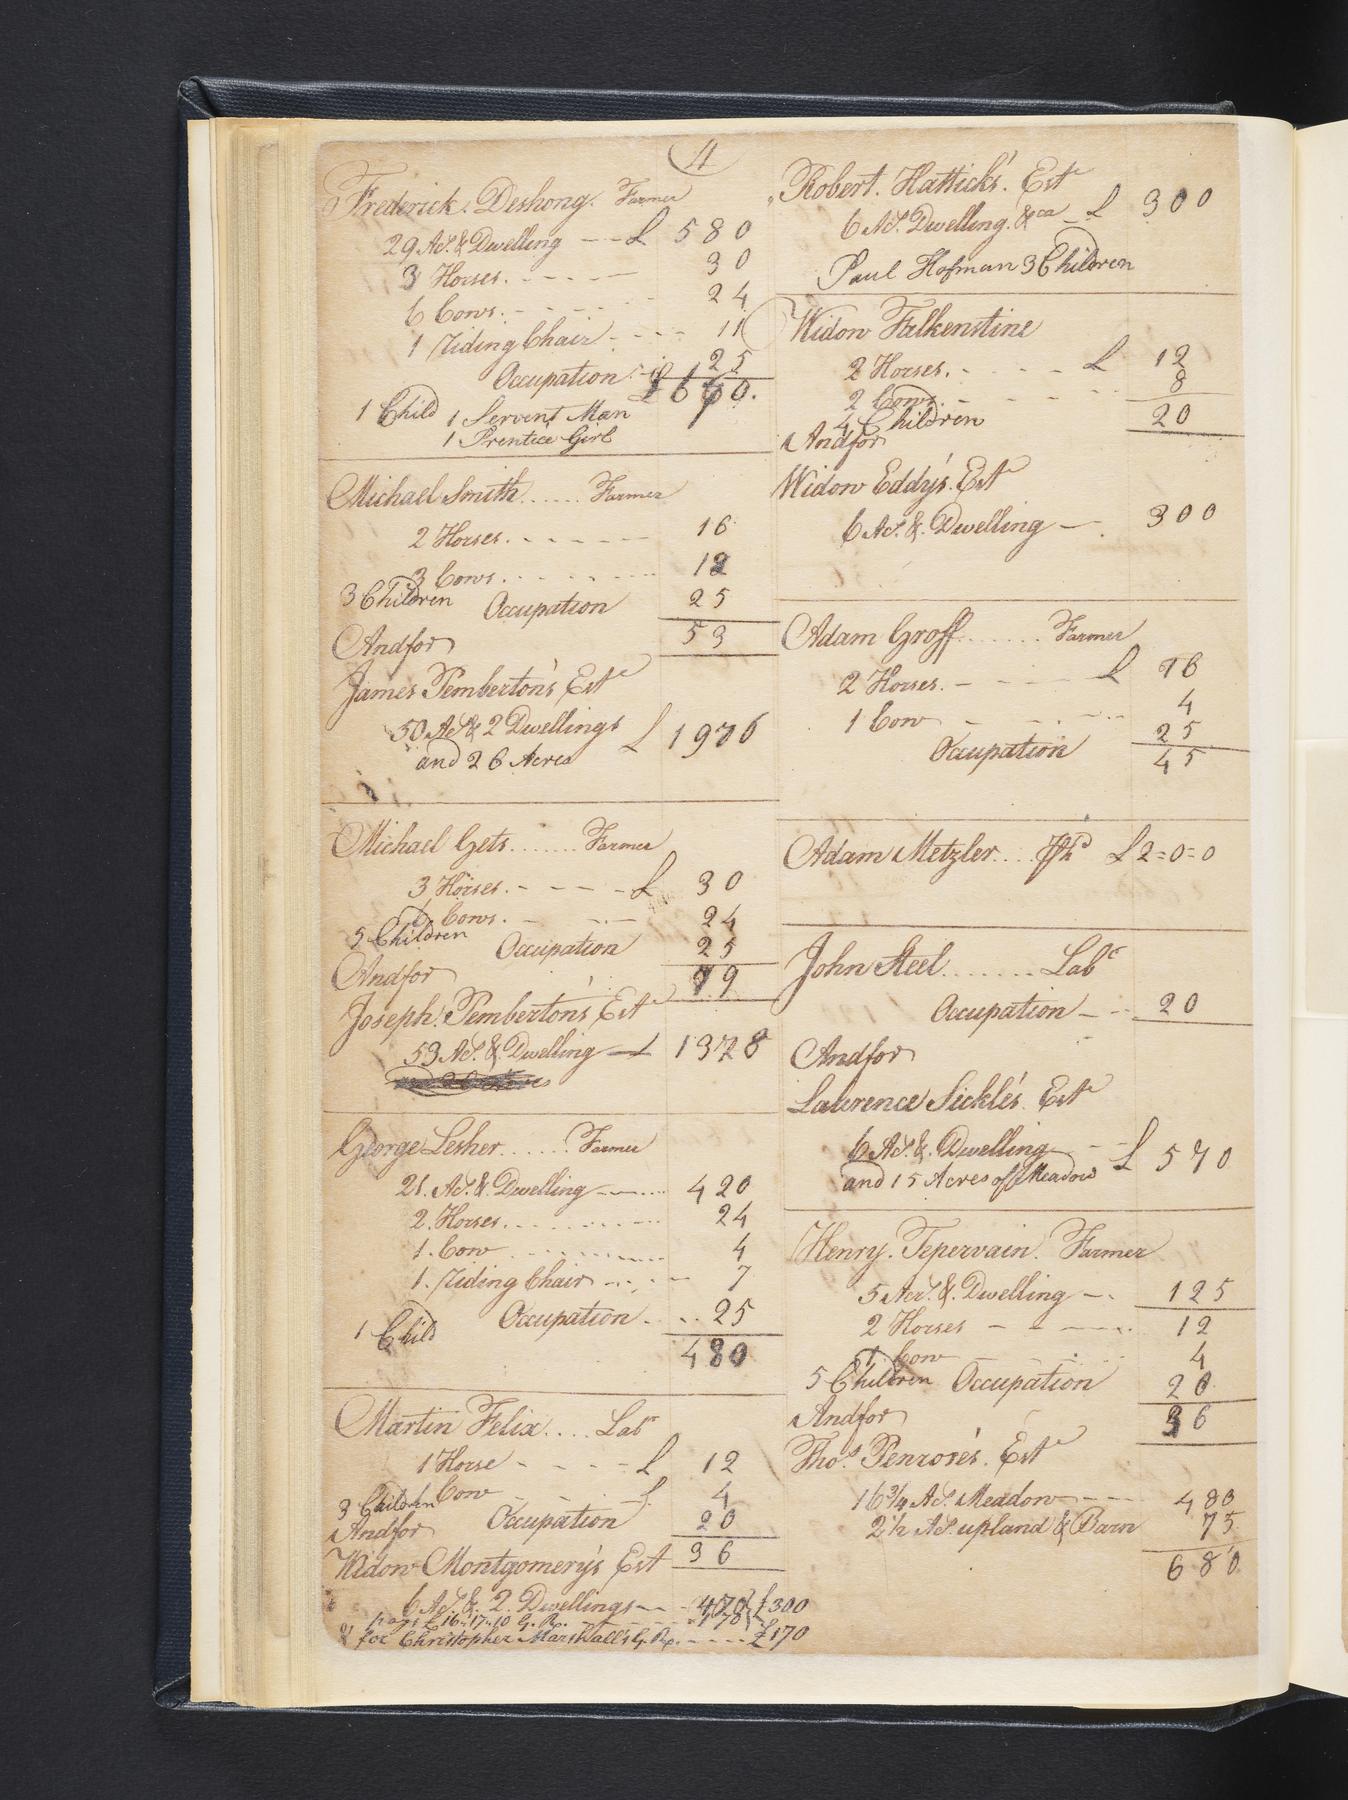 4
Frederick. Deshong. Farmer
29 As. & Dwelling - - £ 580
3 Horses. - - - - 30
6 Cows. - - - - 24
1 Riding Chair - - - - 11
Occupation. 25
£ 6 0.
1 Child 1 Servent Man
1 Prentice Girl
Michael Smith...... Farmer
2 Horses. - - - - - 16
3 Cows. . . . . . . 12
3 Children Occupation 25
Andfor 53
James Pemberton's Este
50 As & 2 Dwellings
and 26 Acres £ 1976
Michael Gets....... Farmer
3 Horses. - - - - £ 30
6 Cows. - - - - 24
5 Children Occupation 25
Andfor 79
Joseph. Pemberton's Este
53 As. & Dwelling - £ 1378
George Lesher...... Farmer
21. As. & Dwelling ....... 420
2. Horses. . . . . . . . . 24
1. Cow . . . . . . . . . 4
1. Riding Chair - . . . - 7
1 Child Occupation. . . . 25
480
Martin Felix.... Labr
1 Horse - - - - - £ 12
Cow - - - 4
3 Children
Andfor Occupation 20
Widow Montgomery's Est 36
6 As. & 2. Dwellings - - 470 £300
pays £16..17..10 G. R. - - - - 170
& for Christopher Marshall's G. R. - - - - £170
Robert. Hattick's. Este
6 As. Dwelling. &ca £ 300
Paul Hofman 3 Children
Widow Falkenstine
2 Horses. - - - - £ 12
2 Cows. - - - - 8
4 Children 20
Andfor
Widow Eddy's. Este
6 As. & Dwelling - 300
Adam Groff....... Farmer
2 Horses. - - - - £ 16
1 Cow - - - - 4
Occupation 25
45
Adam Metzler.... £ 2=0=0
John Steel........ Labr
Occupation - - 20
Andfor
Lawrence Sickle's. Este
6 As. & Dwelling
and 15 Acres of Meadow - - £ 570
Henry. Tepervain. Farmer
5 Acs. & Dwelling - . 125
2 Horses - - - - 12
1 Cow - - - 4
5 Children Occupation 20
Andfor 36
Thos. Penrose's. Este
16 3/4 As. Meadow - - - - 480
2 1/2 As. upland & Barn 75
680